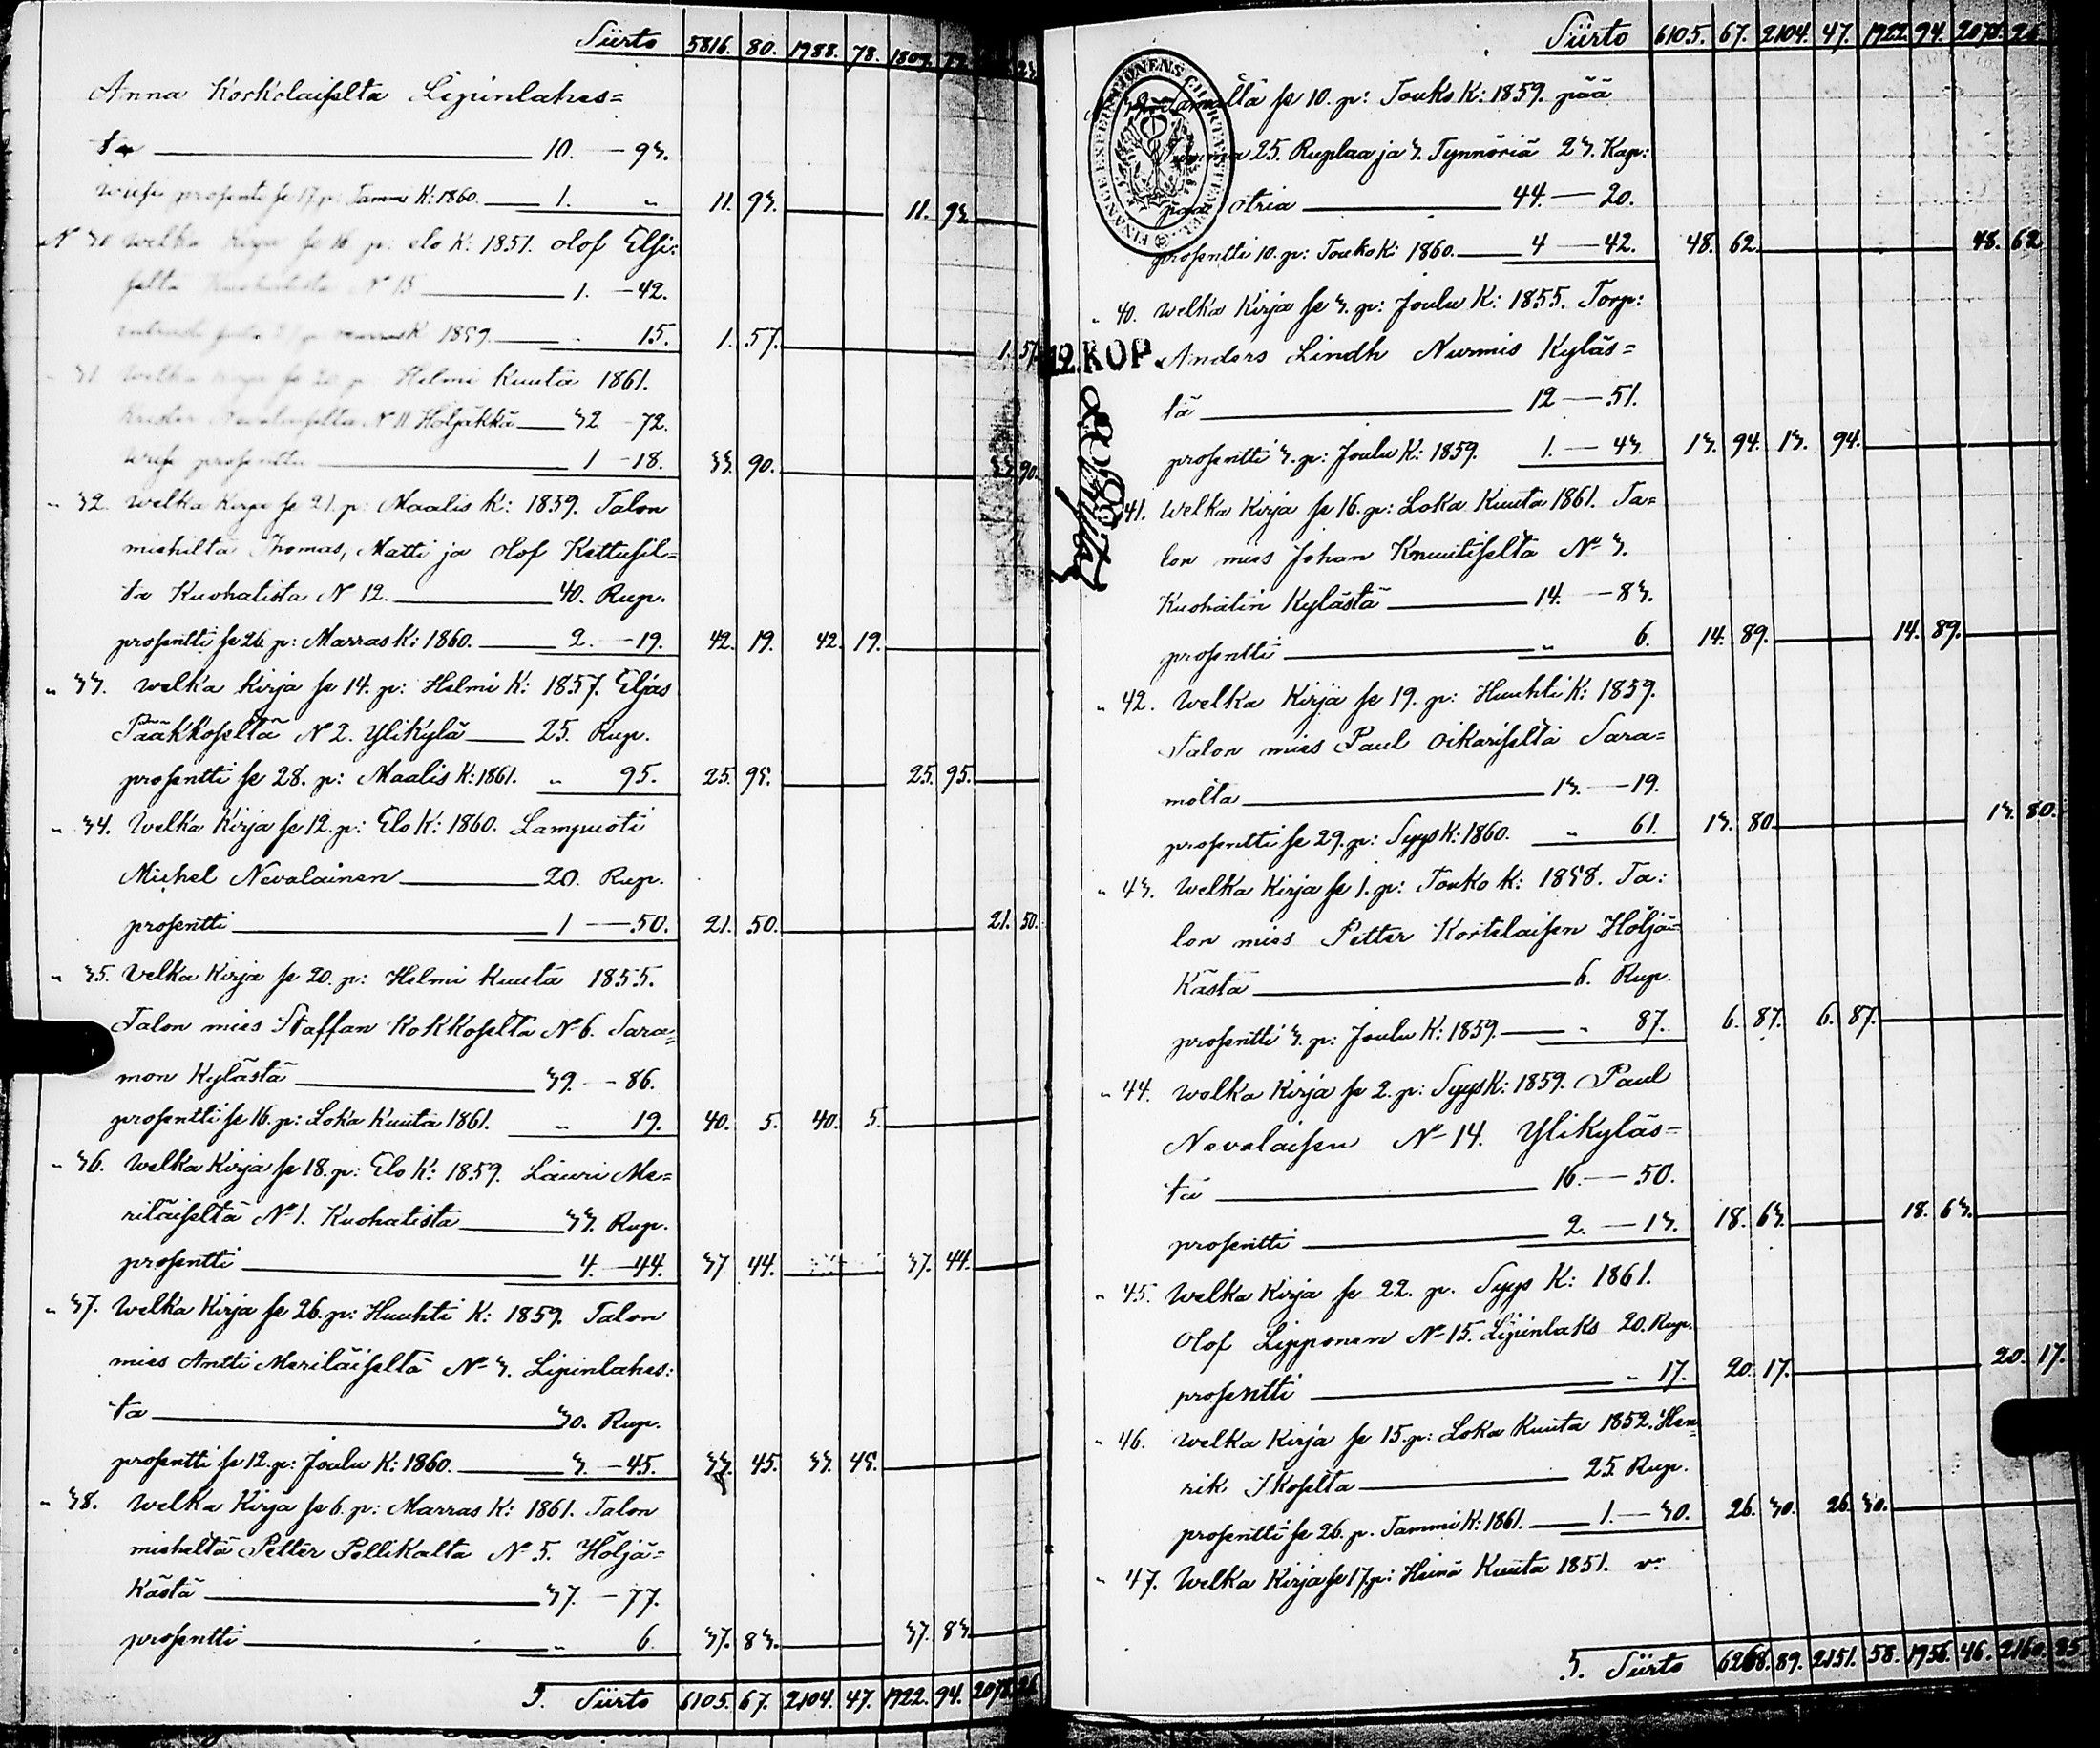 Siirto 5816. 80. 1988. 78. 1809.
Anna Korkolaiselta Lipinlahes=
ta 10. — 93.
wiisi prosentti se 17. p: Tammi K: 1860. 1. „ 11. 93. 11. 93.
N 30 Welka Kirja se 16 p: elo K: 1851. Olof Elsi:
selta N 15 1. — 42.
1859. „ 15. 1. 57. 1. 57.
31. Welka Kirja se 20. p Helmi Kuuta 1861.
N 11 Höljäkkä 32 — 72.
wiisi prosenttia 1 — 18. 33. 90. 33. 90.
„ 32. Welka Kirja se 21. p: Maalis K: 1859. Talon
miehiltä Thomas, Matti ja Olof Kettusil=
ta Kuohatista N 12. 40. Rup.
prosentti se 26. p: Marras K: 1860. 2. — 19. 42. 19. 42. 19.
„ 33. Welka Kirja se 14. p: Helmi K: 1857. Eljas
Pääkkoseltä N 2. Ylikylä 25. Rup.
prosentti se 28. p: Maalis K: 1861. „ 95. 25. 95. 25. 95.
„ 34. Welka Kirja se 12. p: Elo K: 1860. Lampuoti
Michel Nevalainen 20. Rup.
prosentti 1 — 50. 21. 50. 21. 50.
„ 35. Velka Kirja se 20. p: Helmi Kuuta 1855.
Talon mies Staffan Kokkoselta N 6. Sara=
mon Kylästä 39. — 86.
prosentti se 16. p: Loka Kuuta 1861. „ 19. 40. 5. 40. 5.
„ 36. Welka Kirja se 18. p: Elo K: 1859. Lauri Me=
riläiseltä N 1. Kuohatista 33. Rup.
prosentti 4. — 44. 37 44. 37. 44.
„ 37. Welka Kirja se 26. p: Huuhti K: 1859. Talon
mies Antti Meriläiseltä N 3. Lipinlahes:
ta 30. Rup.
prosentti se 12. p: Joulu K: 1860. 3. — 45. 33. 45. 33. 45.
„ 38. Welka Kirja se 6. p: Marras K: 1861. Talon
mieheltä Petter Pellikalta N 5. Höljä=
Kästä 37. — 77.
prosentti „ 6. 37. 83. 37. 83.
5. Siirto 6105. 67. 2104. 47. 1922. 94. 2078. 26
Siirto 6105. 67. 2104. 47. 1922. 94. 2078. 26
se 10. p: Touko K: 1859. pää
25. Ruplaa ja 3. Tynnöriä 23. Kap:
otria 44. — 20.
prosentti 10. p: Touko K: 1860. 4 — 42. 48. 62. 48. 62
„ 40. Welka Kirja se 3. p: Joulu K: 1855. Torp:
12. KOP.
Anders Lindh Nurmis Kyläs=
tä 12 — 51.
prosentti 3. p: Joulu K: 1859. 1. — 43. 13. 94. 13. 94.
41. Welka Kirja se 16. p: Loka Kuuta 1861. Ta=
lon mies Johan Knuutiselta N 3.
Kuohatin Kylästä 14. — 83.
prosentti „ 6. 14. 89. 14. 89.
„ 42. Welka Kirja se 19. p: Huuhti K: 1859.
Talon mies Paul Oikariselta Sara=
molta 13. — 19.
prosentti se 29. p: Syys K: 1860. „ 61. 13. 80. 13. 80.
„ 43. Welka Kirja se 1. p: Touko K: 1858. Ta:
lon mies Petter Kortelaisen Höljä=
Kästä 6. Rup.
prosentti 3. p: Joulu K: 1859. „ 87. 6. 87. 6. 87.
„ 44. Welka Kirja se 2. p: Syys K: 1859. Paul
Nevalaisen N 14. Ylikyläs=
tä 16. — 50.
prosentti 2. — 13. 18. 63. 18. 63.
„ 45. Welka Kirja se 22. p. Syys K: 1861.
Olof Lipponen N 15. Lipinlaks 20. Rup.
prosentti „ 17. 20. 17. 20. 17.
„ 46. Welka Kirja se 15. p: Loka Kuuta 1852. Hen=
rik Ikoselta 25. Rup.
prosentti se 26. p. Tammi K: 1861. 1. — 30. 26. 30. 26. 30.
„ 47. Welka Kirja se 17. p: Heinä Kuuta 1851. v:
5. Siirto 6268. 89. 2151. 58. 1956. 46. 2160. 85